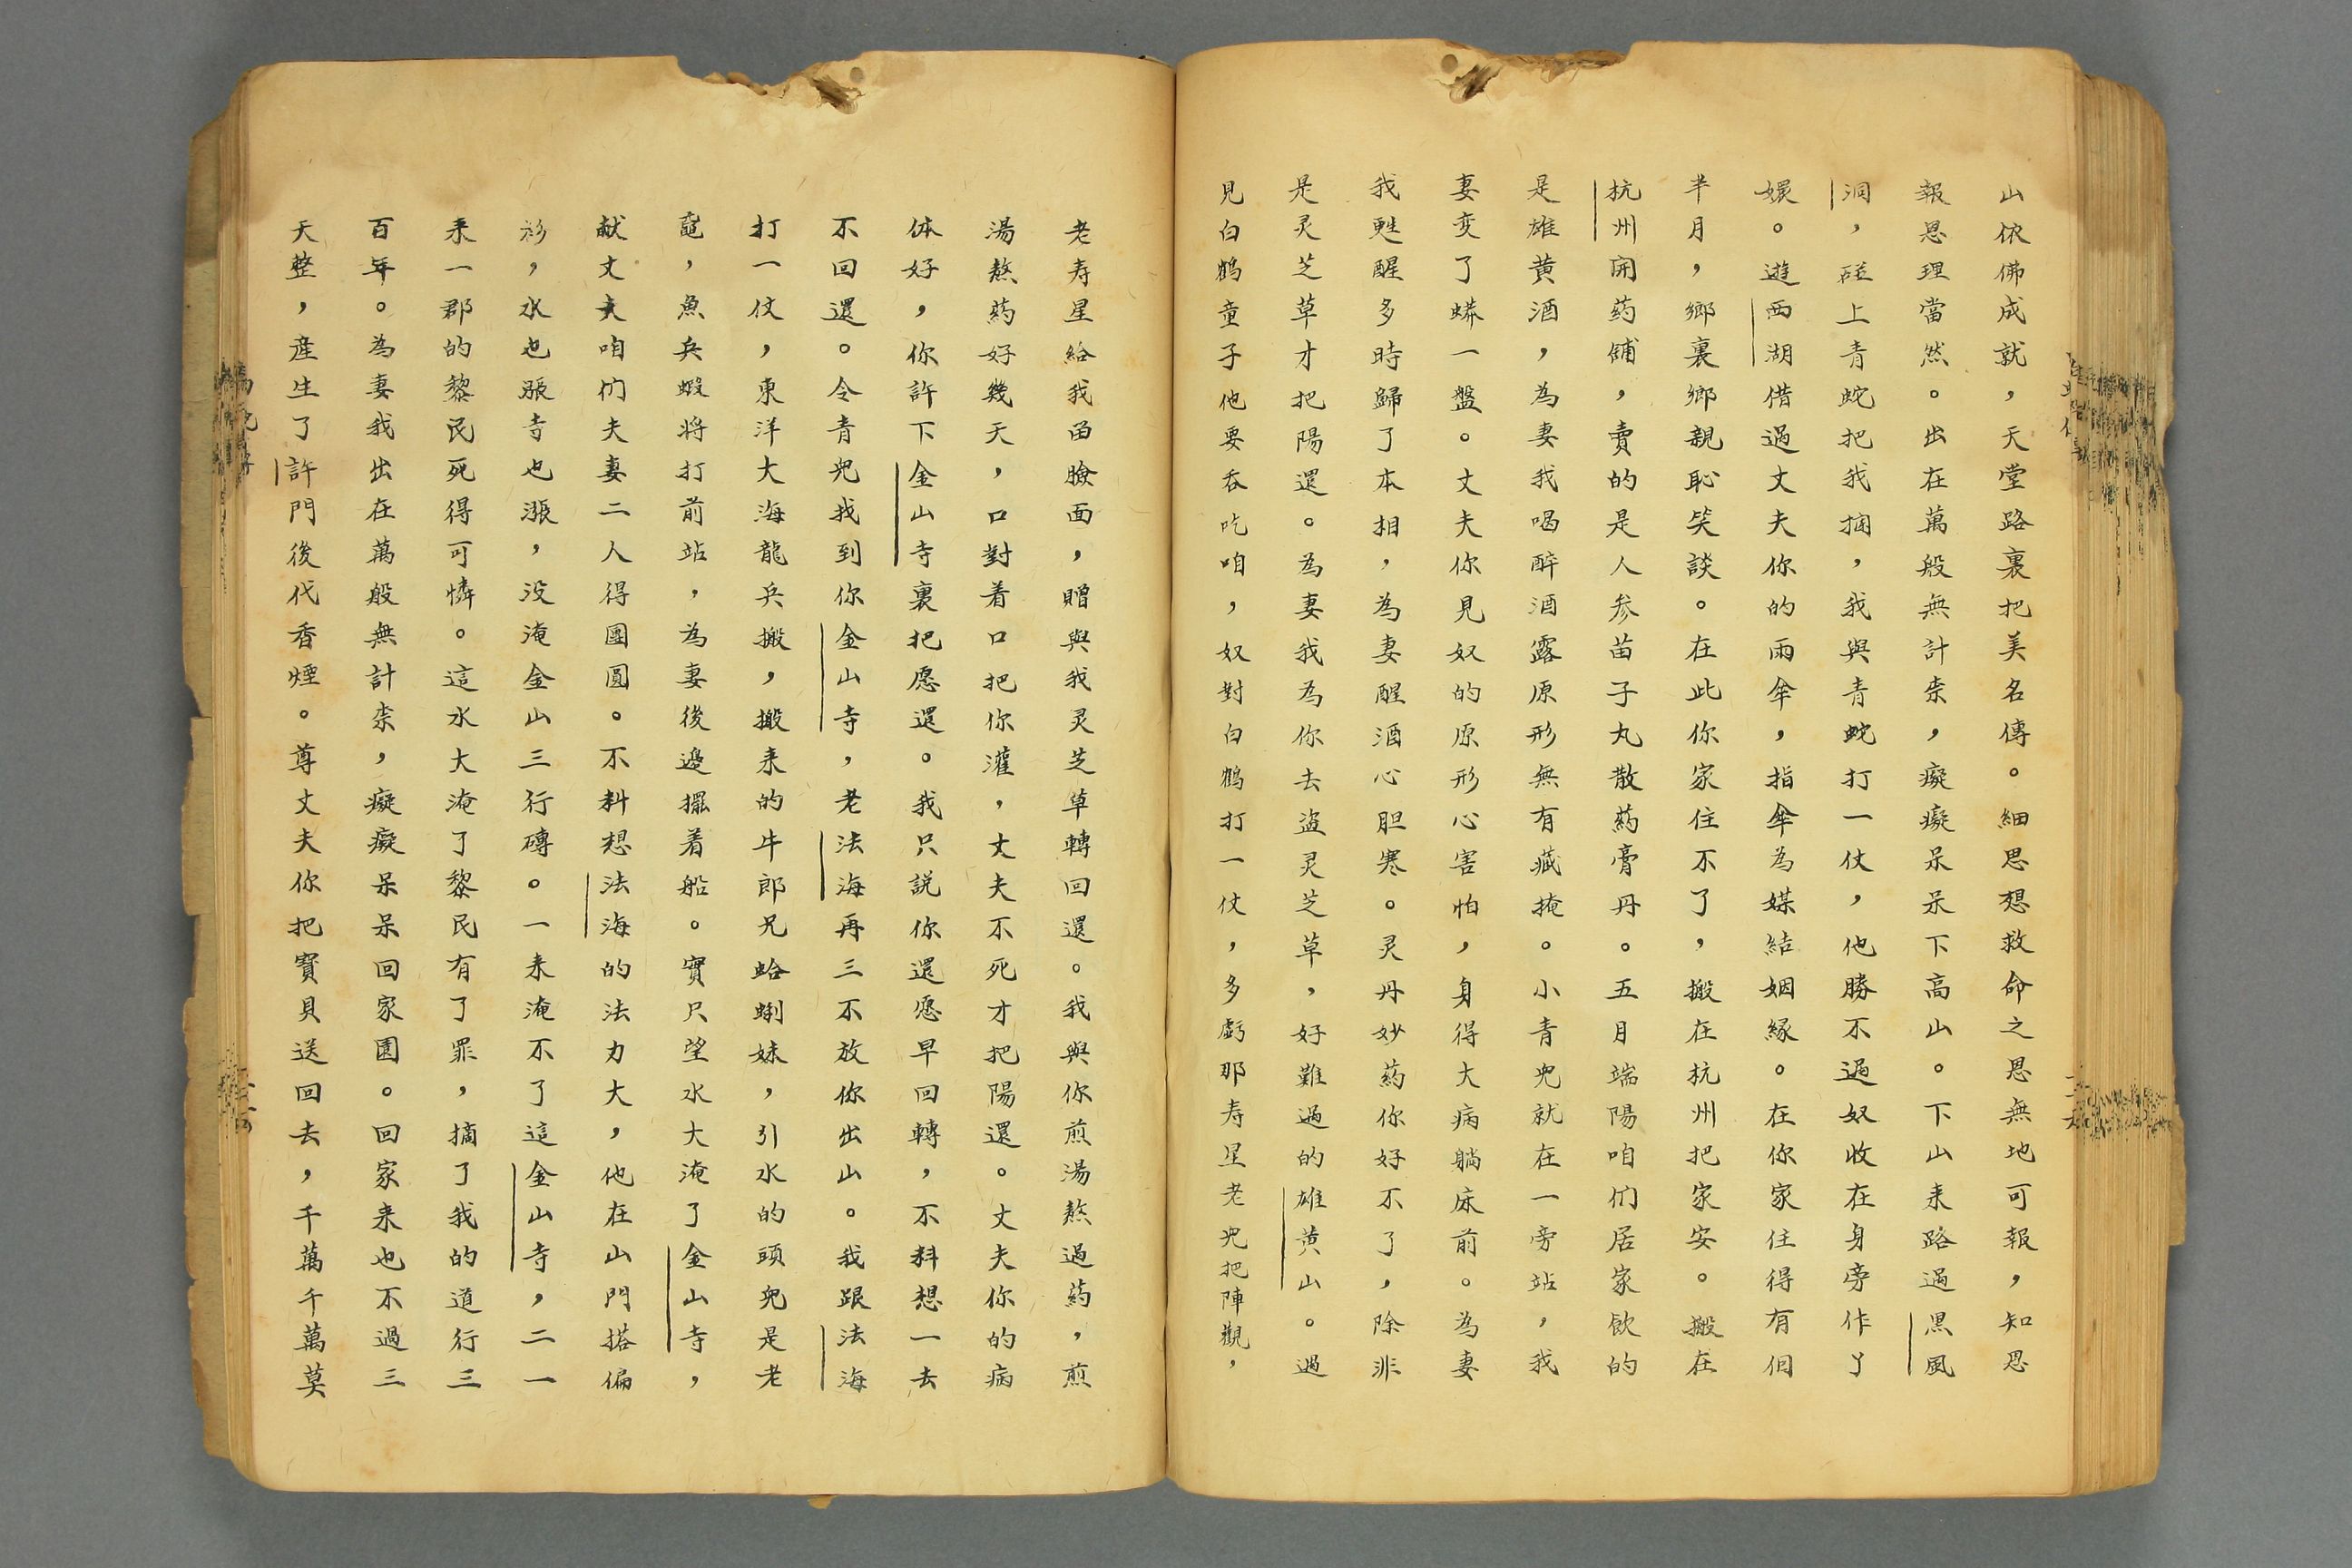 山依佛成就，天堂路裏把美名傳。細思想救命之恩無地可報，知恩
報恩理當然。出在萬般無計柰，癡癡呆呆下高山。下山来路過黑風
洞，碰上青蛇把我捆，我與青蛇打一仗，他勝不過奴收在身旁作丫
嬛。遊西湖借過丈夫你的雨傘，指傘為媒結姻緣。在你家住得有個
半月，鄉裏鄉親恥笑談。在此你家住不了，搬在杭州把家安。搬在
杭州開药鋪，賣的是人参苗子丸散药膏丹。五月端陽咱们居家飲的
是雄黃酒，為妻我喝醉酒露原形無有藏掩。小青兒就在一旁站，我
妻变了蟒一盤。丈夫你見奴的原形心害怕，身得大病躺床前。為妻
我甦醒多時歸了本相，為妻醒酒心胆寒。灵丹妙药你好不了，除非
是灵芝草才把陽還。為妻我為你去盗灵芝草，好難過的雄黄山。過
見白鶴童子他要吞吃咱，奴對白鶴打一仗，多虧那寿星老兒把陣觀，
老寿星給我畄臉面，贈與我灵芝草轉回還。我與你煎湯熬過药，煎
湯熬药好幾天，口對着口把你灌，丈夫不死才把陽還。丈夫你的病
体好，你許下金山寺裏把愿還。我只説你還愿早回轉，不料想一去
不回還。令青兒我到你金山寺，老法海再三不放你出山。我跟法海
打一仗，東洋大海龍兵搬，搬来的牛郎兄蛤蜊妹，引水的頭兒是老
黿，魚兵蝦将打前站，為妻後邊擺着船。實只望水大淹了金山寺，
献丈夫咱们夫妻二人得團圓。不料想法海的法力大，他在山門搭偏
衫，水也漲寺也漲，没淹金山三行磚。一来淹不了這金山寺，二一
来一郡的黎民死得可憐。這水大淹了黎民有了罪，摘了我的道行三
百年。為妻我出在萬般無計柰，癡癡呆呆回家園。回家来也不過三
天整，産生了許門後代香煙。尊丈夫你把寶貝送回去，千萬千萬莫